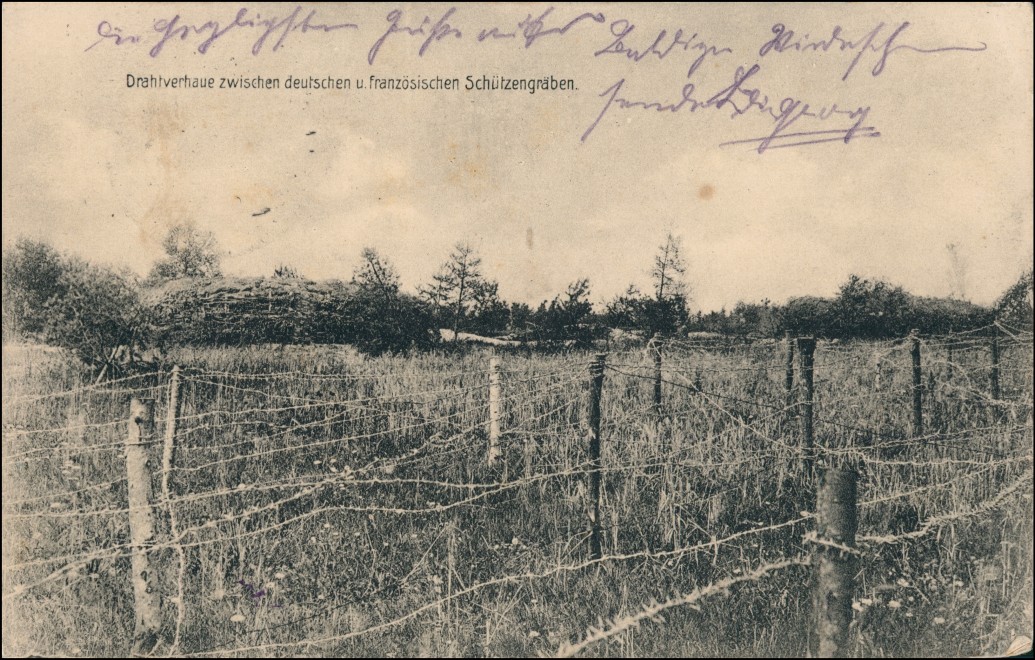 die herzlichsten Grüße
Baldiges Wiedersehn
Drahtverhaue zwischen deutschen u. französischen Schützengräben.
sendet